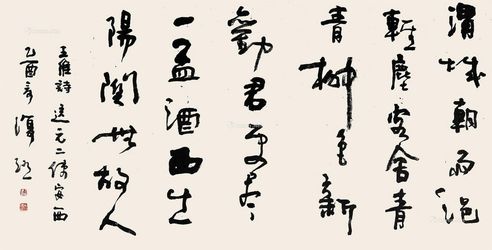 渭城朝雨浥
轻尘客舍青
青柳色新
劝君更尽
一盃酒西出
陽関無故人
王維詩送元二使安西
乙酉